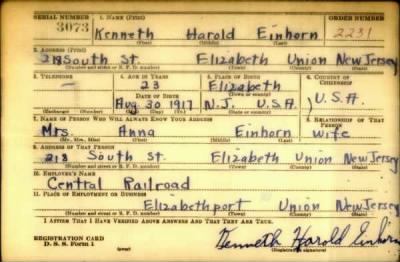 SERIAL NUMBER 1. NAME (Print) ORDER NUMBER
3073 Kenneth Harold Einhorn 2231
(First) (Middle) (Last)
2. ADDRESS (Print)
218 South St. Elizabeth Union New Jersey
(Number and street or R. F. D. number) (Town) (County) (State)
3. TELEPHONE 4. AGE IN YEARS 5. PLACE OF BIRTH 6. COUNTRY OF CITIZENSHIP
— 23 Elizabeth
DATE OF BIRTH (Town or county)
Aug 30 1917 N.J. U.S.A. U.S.A.
(Exchange) (Number) (Mo.) (Day) (Yr.) (State or country)
7. NAME OF PERSON WHO WILL ALWAYS KNOW YOUR ADDRESS 8. RELATIONSHIP OF THAT PERSON
Mrs. Anna Einhorn wife
(Mr., Mrs., Miss) (First) (Middle) (Last)
9. ADDRESS OF THAT PERSON
218 South St. Elizabeth Union New Jersey
(Number and street or R. F. D. number) (Town) (County) (State)
10. EMPLOYER'S NAME
Central Railroad
11. PLACE OF EMPLOYMENT OR BUSINESS
Elizabethport Union New Jersey
(Number and street or R. F. D. number) (Town) (County) (State)
I AFFIRM THAT I HAVE VERIFIED ABOVE ANSWERS AND THAT THEY ARE TRUE.
REGISTRATION CARD
D. S. S. Form 1 (over) Kenneth Harold Einhorn
(Registrant's signature)